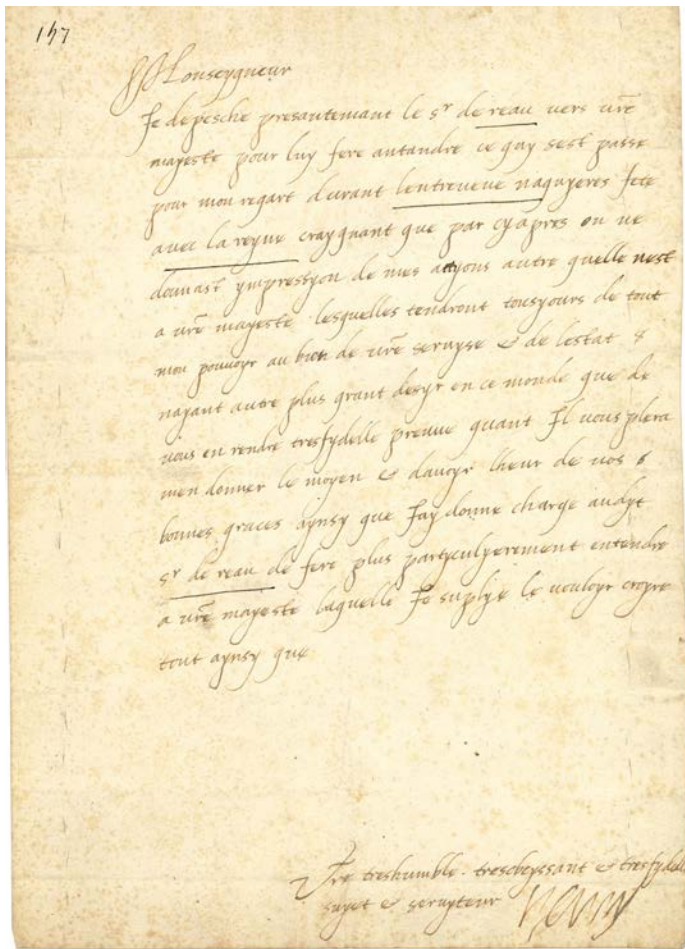 147
Monseygneur
Je depesche presantemant le sr de reau vers vre
mageste pour luy fere antandre ce quy sest passe
pour mon regart durant lentreveue naguyeres fete
avec la reyne craygnant que par cyapres on ne
donnast ympressyon de mes actyons autre quelle nest
a vre mageste lesquelles tendront tousyours de tout
mon pouvoyr au bien de vre servyse & de lestat
nayant autre plus grant desyr en ce monde que de
vous en rendre tresfydelle preuve quant Il vous plera
men donner le moyen & davoyr lheur de vos
bonnes graces aynsy que Jay donne charge audyt
sr de reau de fere plus partyculyerement entendre
a vre mageste laquelle Je suplye le vouloyr croyre
tout aynsy que
Vre treshumble tresobeyssant & tresfydelle
suget & servyteur Henry